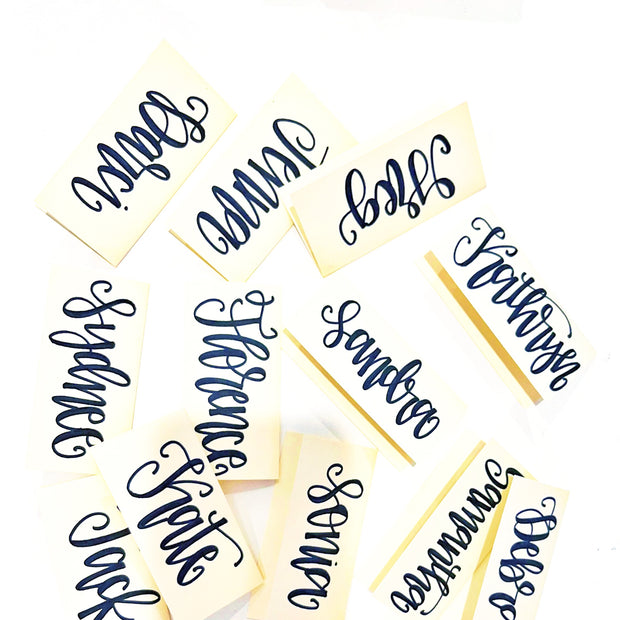 Darci
Jenna
Greg
Kathryn
Sydnee
Florence
Sandra
Kate
Sonia
Samantha
Debra
Jack